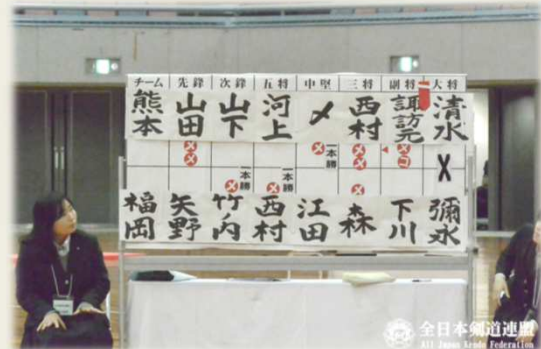 チーム 先鋒 次鋒 五将 中堅 三将 副将 大将
熊本 山田 山下 河上 〆 西村 諏訪元 清水
メ メ メ 一本勝 メ メ メ コ
メ 一本勝 メ 一本勝 メ
福岡 矢野 竹内 西村 江田 森 下川 彌永
全日本剣道連盟
All Japan Kendo Federation